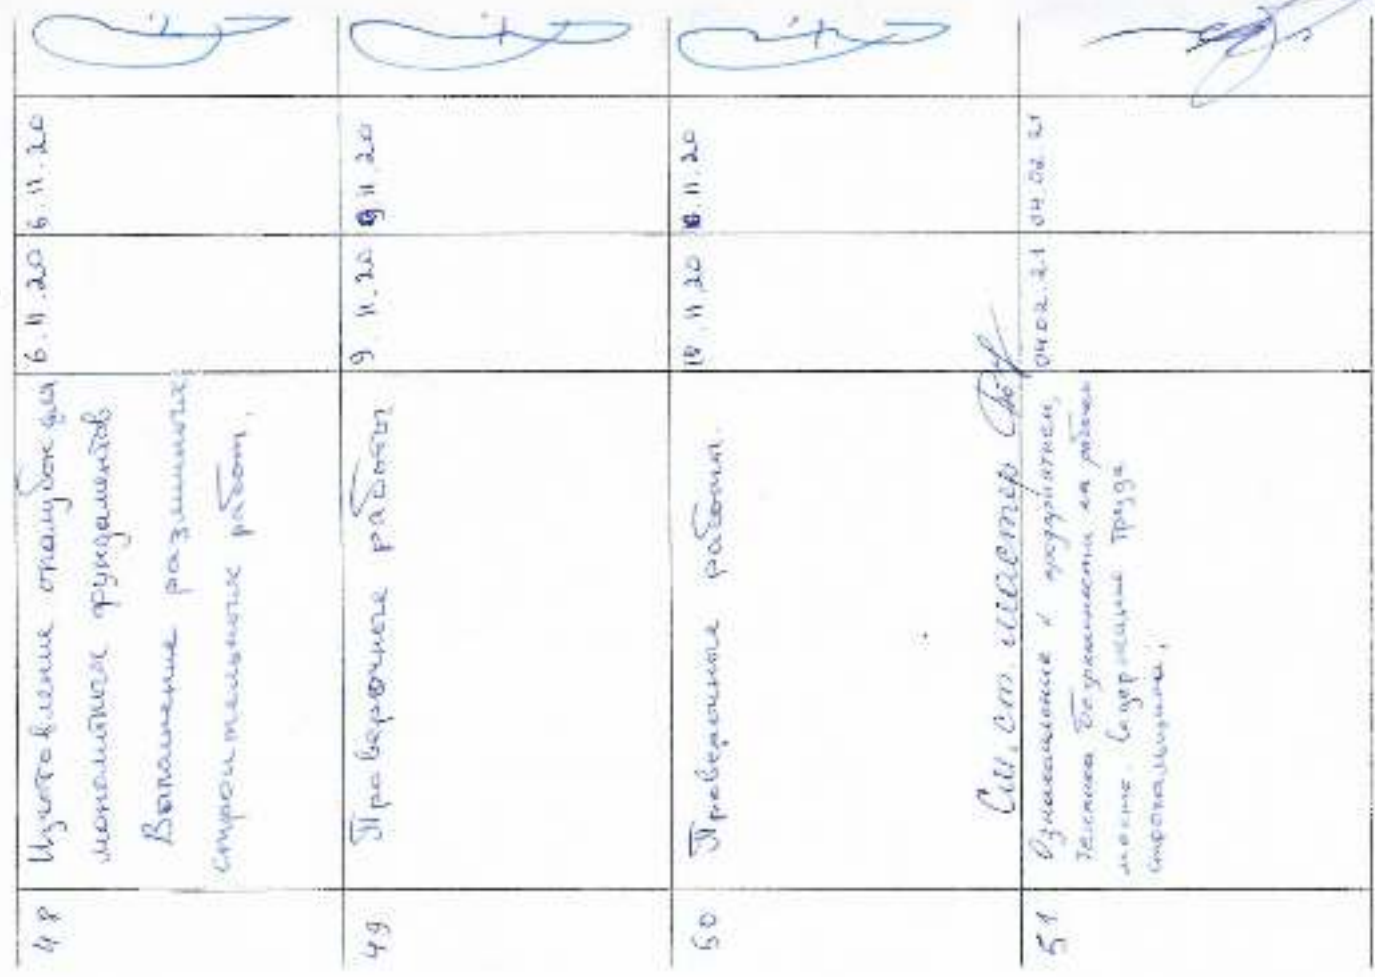 48
Изготовление опалубок для
монолитных фундаментов
Выполнение различных
строительных работ.
6.11.20
6.11.20
49
Проверочные работы
9.11.20
9.11.20
50
Проверочные работы.
10.11.20
10.11.20
См. ст. мастер
51
Ознакомление с предприятием,
Техника безопасности на рабочем
месте. Содержание труда
стропальщика,
04.02.21
04.02.21